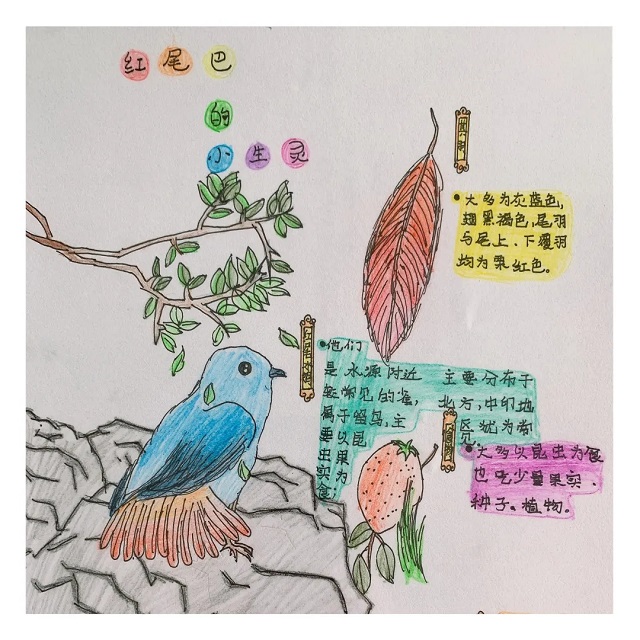 红尾巴
的
小生灵
大多为灰蓝色,
翅黑褐色,尾羽
与尾上、下覆羽
均为栗红色。
他们
是水源附近
较常见的雀,
属于留鸟,主
要以昆
虫果
实为
食。
主要分布于
北方,中印地
区 犹为常
见
大多以昆虫为食
也吃少量果实、
种子。植物。